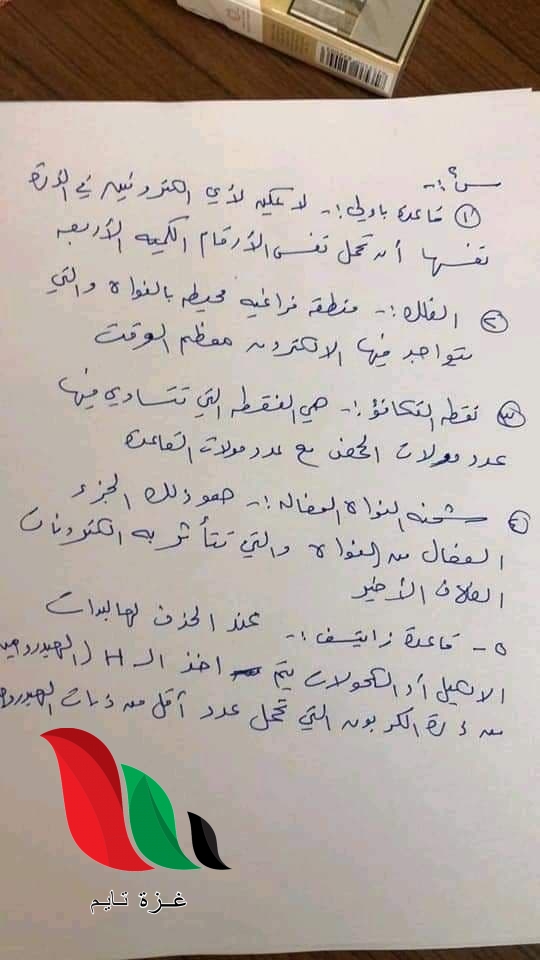 س٤:-
① قاعدة باولي:- لا يمكن لأي الكترونين في الذرة
نفسها أن تحمل نفس الأرقام الكميه الأربعه
② الفلك:- منطقه فراغيه محيطه بالنواة والتي
يتواجد فيها الالكترون معظم الوقت
③ نقطه التكافؤ:- هي النقطه التي تتساوي فيها
عدد مولات الحمض مع عدد مولات القاعدة
④ شحنه النواة الفعاله:- هو ذلك الجزء
الفعال من النواة والتي تتأثر به الكترونات
الغلاف الأخير
٥- قاعدة زايتسف:- عند الحذف لهاليدات
الالكيل أو الكحولات يتم اخذ الـ H (الهيدروجين
من ذرة الكربون التي تحمل عدد أقل من ذرات الهيدروجين
غـزة تايم